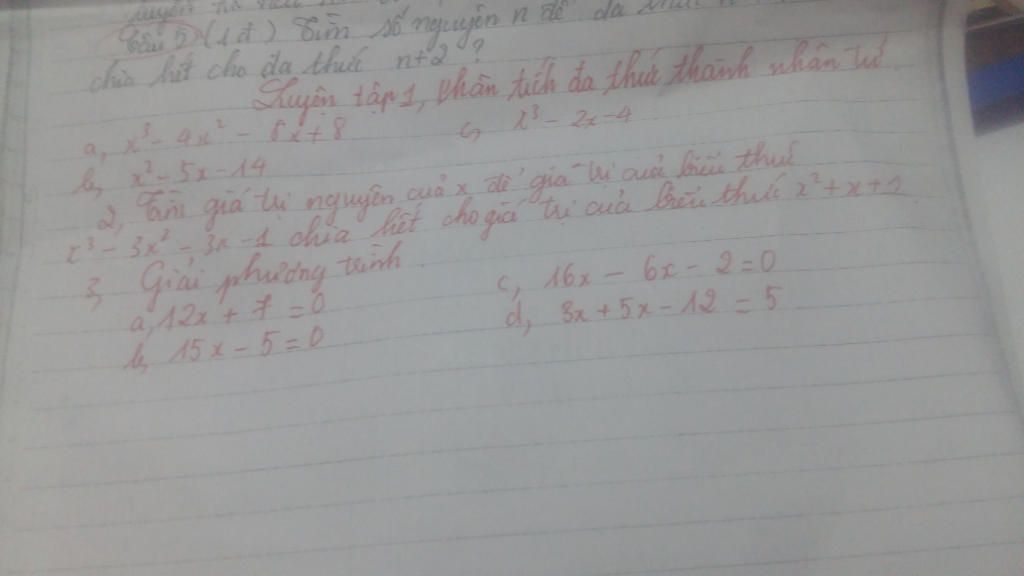 Câu 5 (1đ) Tìm số nguyên n để đa thức
chia hết cho đa thức n+2 ?
Luyện tập 1, Phân tích đa thức thành nhân tử
a, x³ - 4x² - 8x + 8 c, x³ - 2x - 4
b, x² - 5x - 14
2, Tìm giá trị nguyên của x để giá trị của biểu thức
x³ - 3x² - 3x - 1 chia hết cho giá trị của biểu thức x² + x + 1
3, Giải phương trình
a, 12x + 7 = 0 c, 16x - 6x - 2 = 0
b, 15x - 5 = 0 d, 3x + 5x - 12 = 5